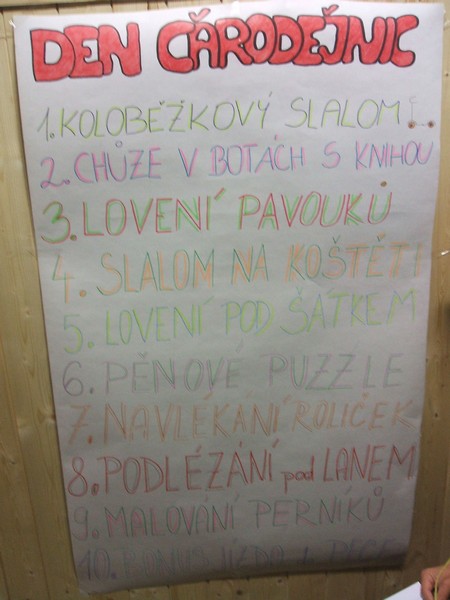 DEN ČÁRODĚJNIC
1. KOLOBĚŽKOVÝ SLALOM
2. CHŮZE V BOTÁCH S KNIHOU
3. LOVENÍ PAVOUKŮ
4. SLALOM NA KOŠTĚTI
5. LOVENÍ POD ŠÁTKEM
6. PĚNOVÉ PUZZLE
7. NAVLÉKÁNÍ ROLIČEK
8. PODLÉZÁNÍ pod LANEM
9. MALOVÁNÍ PERNÍKŮ
10. JÍZDA